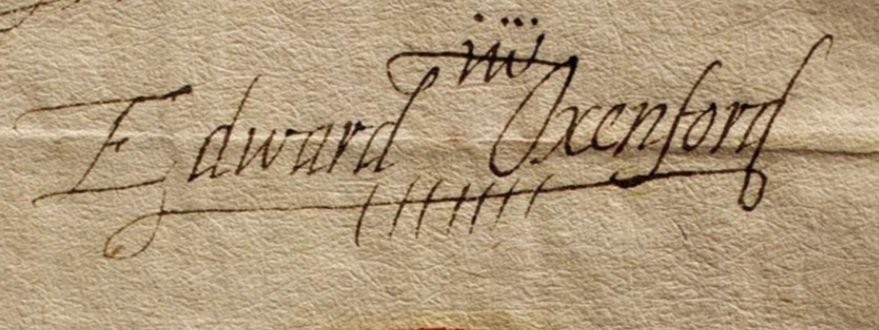 Edward Oxenford